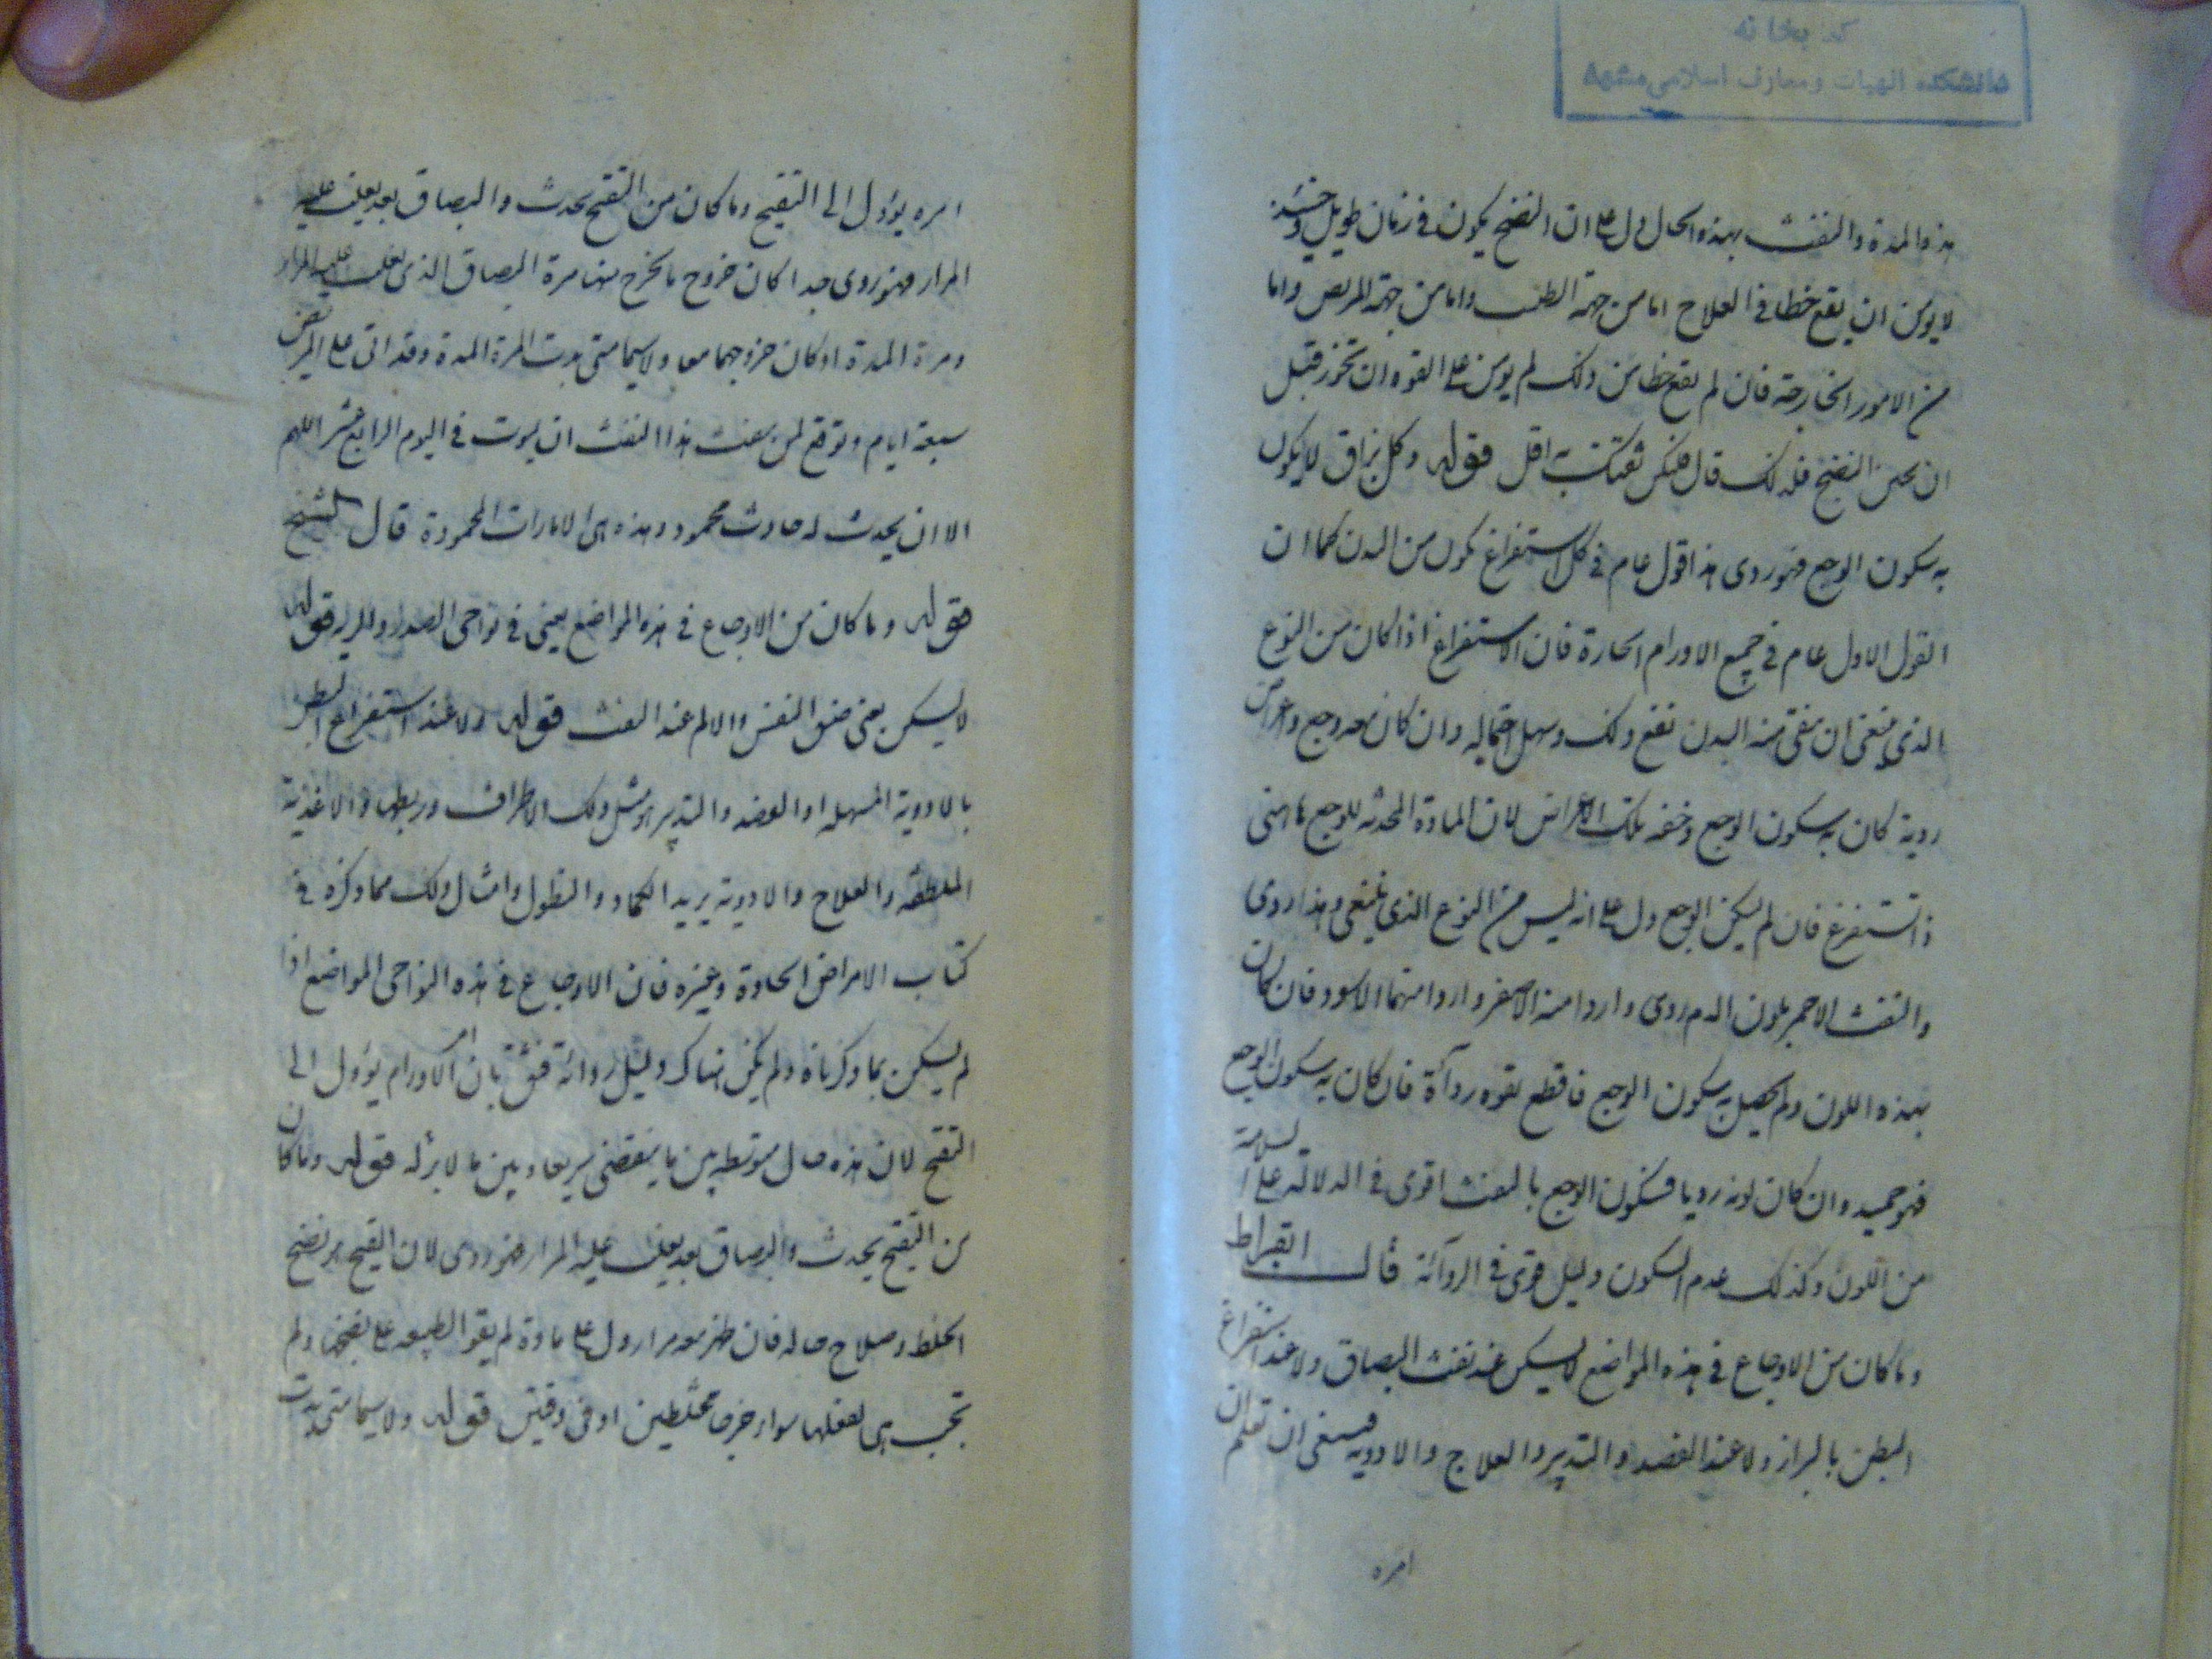 كتابخانه
دانشكده الهيات ومعارف اسلامى مشهد
هذه المدة والنفث بهذه الحال دل على ان النضج يكون فى زمان طويل وحينئذ
لا يومن ان يقع خطا فى العلاج اما من جهة الطبيب واما من جهة المريض واما
من الامور الخارجة فان لم يقع خطا من ذلك لم يومن على القوة ان تخور قبل
ان يحس النضج فلذلك قال فلتكن ثقتك به اقل قوله وكل بزاق لا يكون
به سكون الوجع فهو ردى هذا قول عام فى كل استفراغ يكون من البدن كما ان
القول الاول عام فى جميع الاورام الحارة فان الاستفراغ اذا كان من النوع
الذى ينبغى ان ينقى منه البدن نفع ذلك وسهل احتماله وان كان معه وجع واعراض
ردية كان به سكون الوجع وخفه تلك الاعراض لان المادة المحدثه للوجع هى
تستفرغ فان لم يسكن الوجع دل على انه ليس من النوع الذى ينبغى وهذا ردى
والنفث الاحمر بلون الدم ردى واردا منه الاصفر واردا منهما الاسود فان كان
بهذه اللون ولم يحصل به سكون الوجع فاقطع بقوه رداءة فان كان به سكون الوجع
فهو حميد وان كان لونه رديا فسكون الوجع بالنفث اقوى فى الدلالة على السلامة
من اللون وكذلك عدم السكون دليل قوى فى الرداءة قال ابقراط
وما كان من الاوجاع فى هذه المواضع لا يسكن عند نفث البصاق ولا عند استفراغ
البطن بالبراز ولا عند الفصد والتدبير والعلاج والادوية فينبغى ان تعلم ان
امره
امره يؤول الى التقيح وما كان من التقيح يحدث والبصاق بعد يغلب عليه
المرار فهو ردى جدا كان خروج ما يخرج منها مرة البصاق الذى يغلب عليه المرار
ومرة المدة او كان خروجهما معا ولا سيما متى بدت المرة المدة وقد اتى على المريض
سبعة ايام وتوقع لمن ينفث هذا النفث ان يموت فى اليوم الرابع عشر اللهم
الا ان يحدث له حادث محمود وهذه هى الامارات المحمودة قال الشيخ
قوله وما كان من الاوجاع فى هذه المواضع يعنى فى نواحى الصدر والرية قوله
لا يسكن يعنى ضيق النفس والالم عند النفث قوله ولا عند استفراغ البطن
بالادوية المسهله او الفصد والتدبير مثل دلك الاطراف وربطها والاغذية
الملطفة والعلاج والادوية يريد الكماد والنطول وامثال ذلك مما ذكره فى
كتاب الامراض الحادة وغيره فان الاوجاع فى هذه النواحى المواضع اذا
لم يسكن بما ذكرناه ولم يكن هناك دليل رداءة فثق بان امر الاورام يؤول الى
التقيح لان هذه حال متوسطه بين ما ينقضى سريعا وبين ما لا برأ له قوله وما كان
من التقيح يحدث والبصاق بعد يغلب عليه المرار فهو ردى لان القيح هو نضج
الخلط وصلاح حاله فان ظهر معه مرار دل على مادة لم يقو الطبيعه على نضجها ولم
تجب هى لفعلها سواء خرجا مختلطين او فى وقتين قوله ولا سيما متى بدت